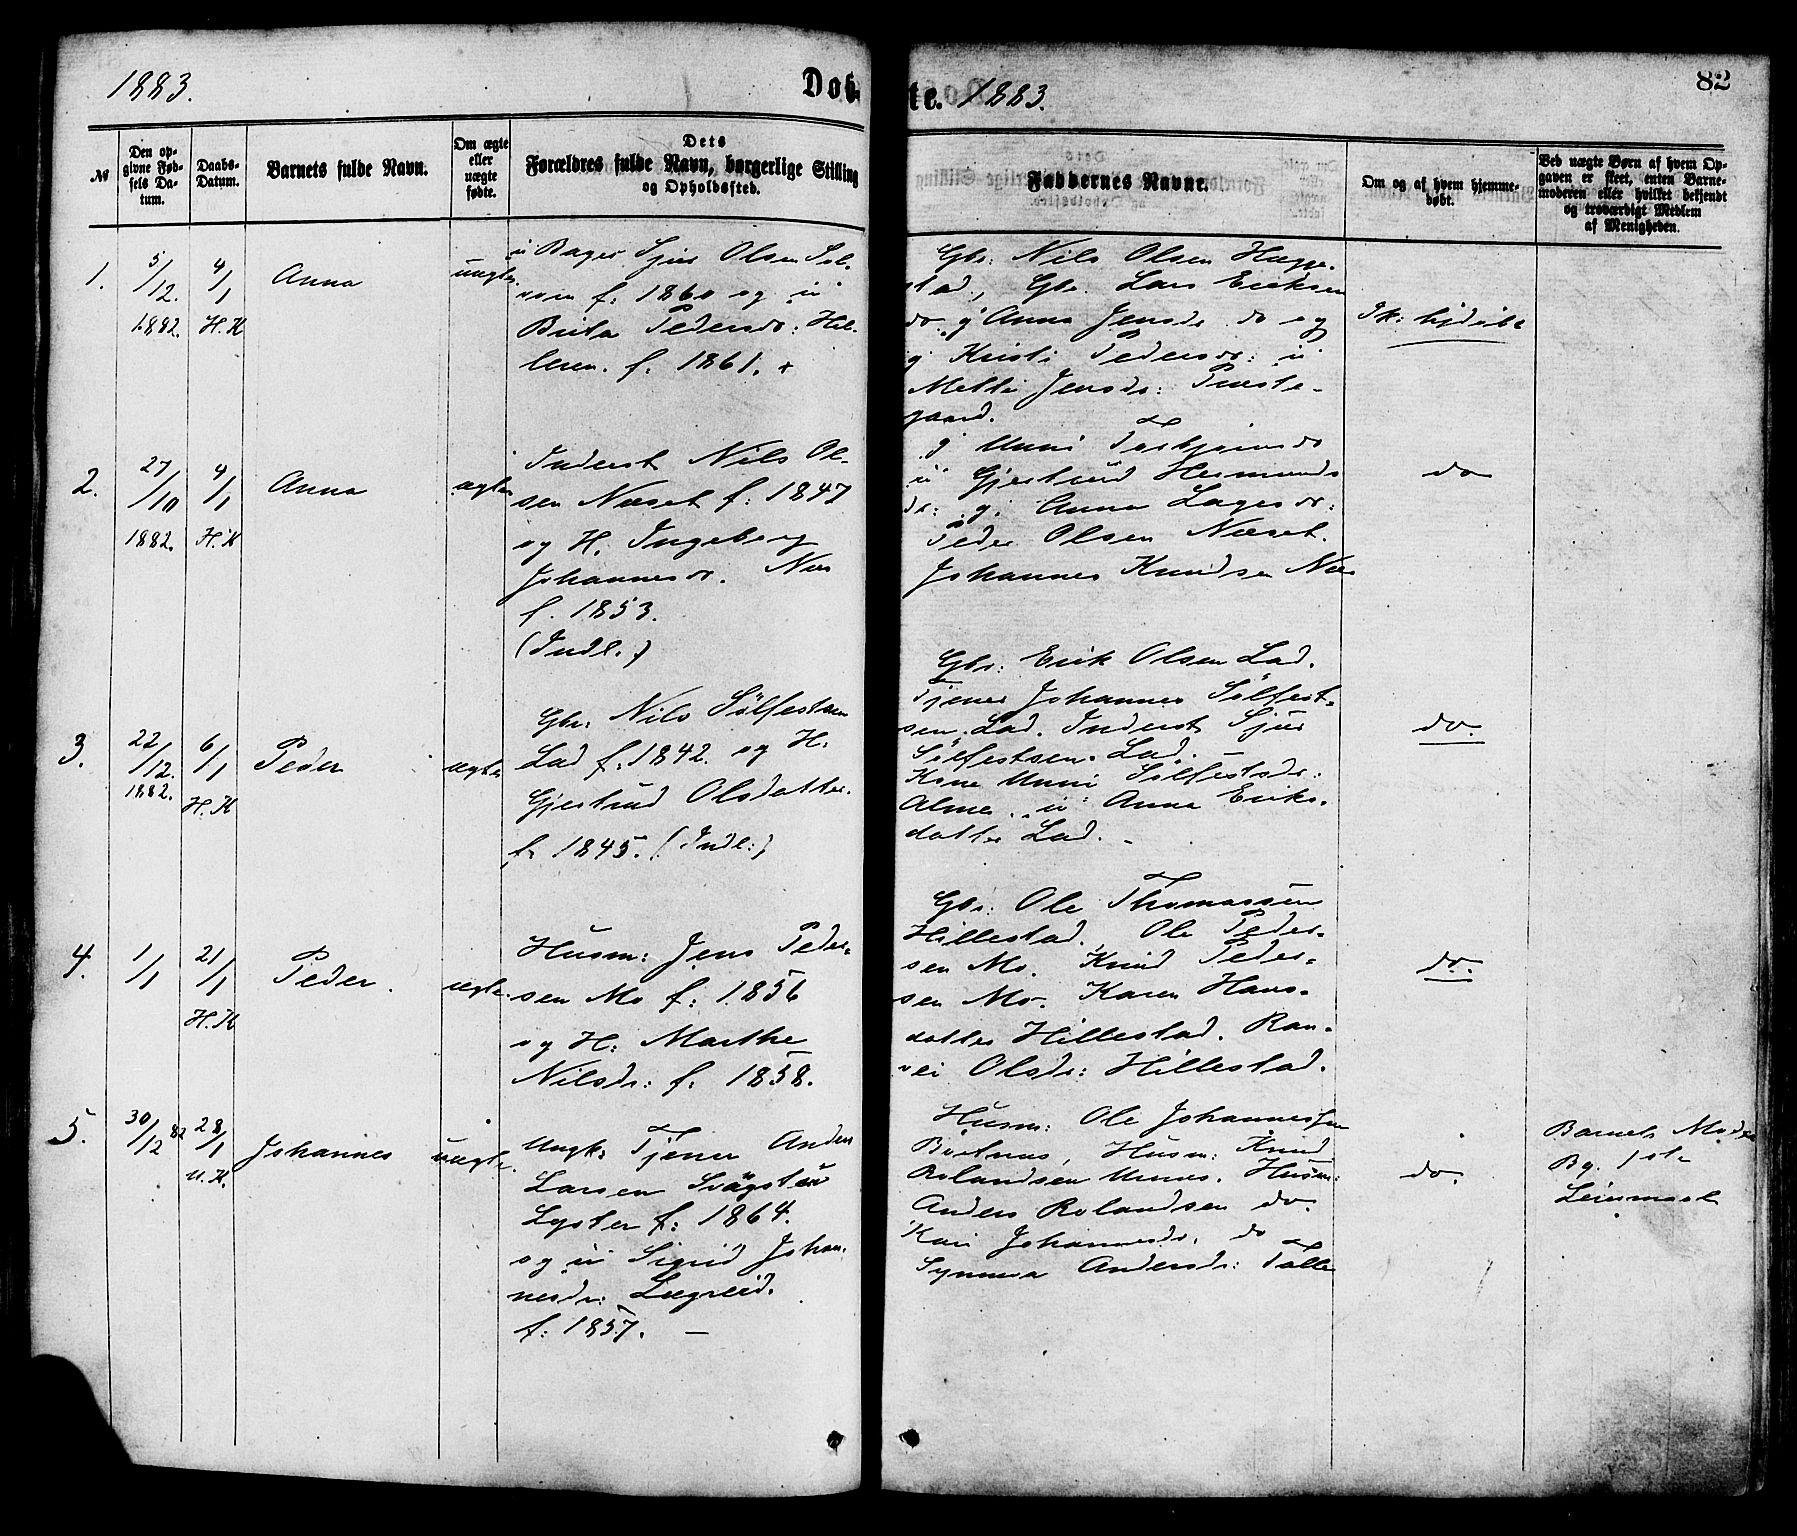 1883.
Døb
te. 1883.
82
№
Den op-
givne Fød-
sels Da-
tum.
Daabs-
Datum.
Barnets fulde Navn.
Om ægte
eller
uægte
fødte.
Dets
Forældres fulde Navn, borgerlige Stilling
og Opholdssted.
Faddernes Navne.
Om og af hvem hjemme-
døbt.
Ved uægte Børn af hvem Op-
gaven er skeet, enten Barne-
moderen eller hvilket bekjendt
og troværdigt Medlem
af Menigheden.
1.
5/12.
1882.
4/1
H. K
Anna
uægte
Olsen
f: 1860 og ü
Brita Pedersdr: Hil-
leren. f. 1861. +
Gbr: Nils Olsen Hagge-
stad, Gbr. Lars Eriksen
do g Anna Jensdr do og
g Kristi Pedersdr: ü
Metti Jensdr: Præste-
gaard.
2.
27/10
1882.
4/1
H. K
Anna
ægte
Inderst Nils Ol-
sen Næset f: 1847
og H. Ingeborg
Johannesdr. Næs
f. 1853.
(Indl.)
g Unni Torbjørnsdr
ü Gjertrud Hermunds
dr: g. Anna Lagesdr:
Peder Olsen Næset.
Johannes Knudsen Næs
do
3.
22/12.
1882.
6/1
H. K
Peder
ægte
Gbr: Nils Sølfestsen
Lad f. 1842. og H.
Gjertrud Olsdatter.
f. 1845. (Indl:)
Gbr: Erik Olsen Lad.
Tjener Johannes Sølfest-
sen Lad. Inderst Sjur
Sølfestsen Lad.
Kone Unni Sølfestsdr:
Alme. ü Anna Eriks-
datter Lad. -
do.
4.
1/1
21/1
H. K
Peder.
ægte.
Husm: Jens Peder-
sen Mo f: 1856
og H: Marthe
Nilsdr: f: 1858.
Gbr: Ole Thomassen
Hillestad. Ole Peder-
sen Mo. Knud Peder-
sen Mo. Karen Hans-
datter Hillestad. Ran-
vei Olsdr: Hillestad.
do.
5.
30/12 82
28/1
U. K.
Johannes
uægte.
Ungk: Tjener Anders
Larsen
Lyster f: 1864.
og ü Sigrid Johan-
nesdr: Lægreid.
f: 1857. —
Husm: Ole Johannessen
Husm: Knud
Rolandsen Urnes. Husm:
Anders Rolandsen do.
Kari Johannesdr. do
Synneva Andersdr:
do.
Barnets Moder
Bg. 1ste
Leiermaal